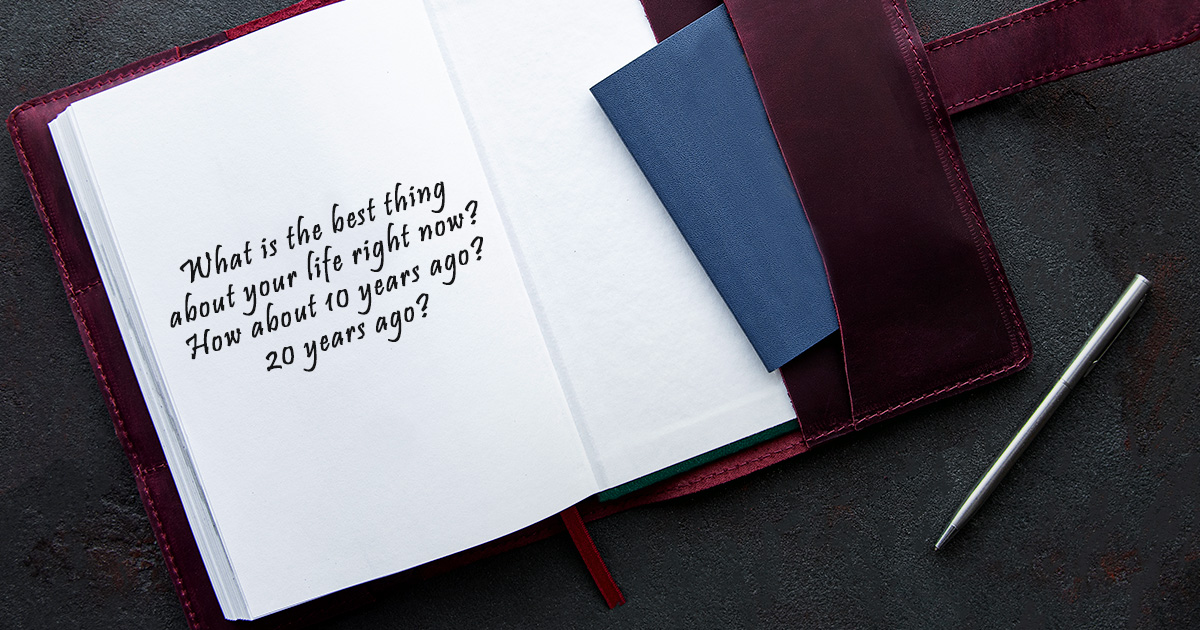 What is the best thing
about your life right now?
How about 10 years ago?
20 years ago?